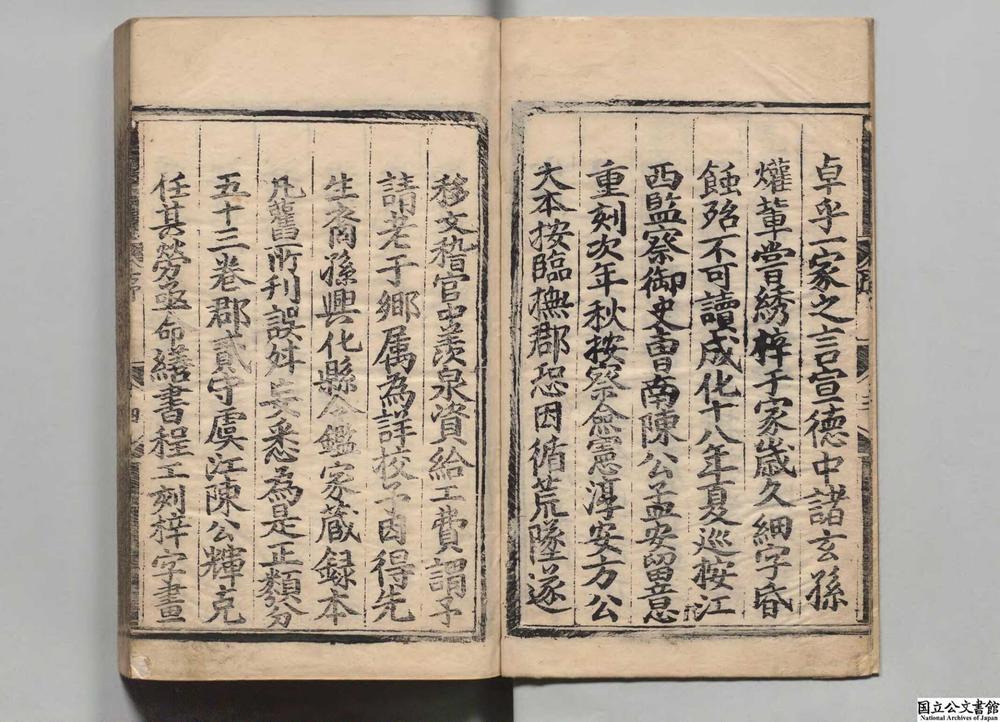 卓乎一家之言宣德中諸玄孫
爟輩嘗綉梓于家歲久細字昏
蝕殆不可讀成化十八年夏巡按江
西監察御史莆南陳公孟安留意
重刻次年秋按察僉憲淳安方公
大本按臨撫郡恐因循荒墜遂
移文稽官中羨泉資給工費謂予
請老于鄉属為詳校予因得先
生裔孫興化縣令鑑家蔵録本
凡舊所刊誤舛妄悉為是正類分
五十三巻郡貳守虞江陳公輝克
任其勞亟命繕書程工刻梓字畫
序
四
国立公文書館
National Archives of Japan